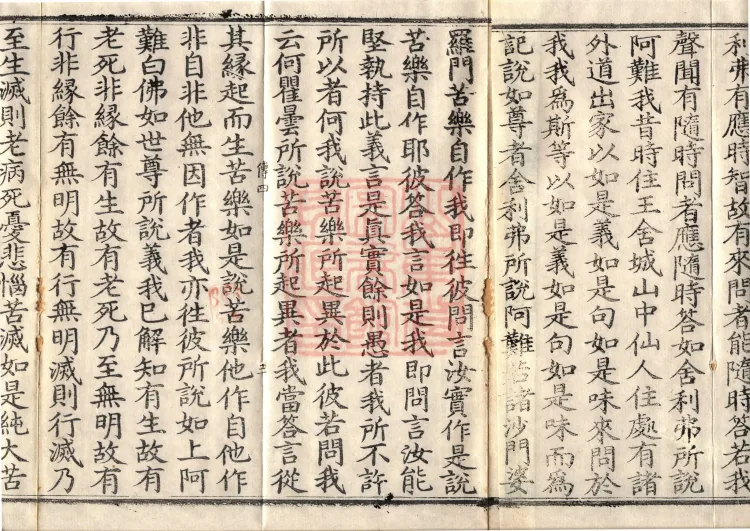 利弗有應時智故有來問者能隨時答若我
聲聞有隨時問者應隨時答如舍利弗所說
阿難我昔時住王舍城山中仙人住處有諸
外道出家以如是義如是句如是味來問於
我我為斯等以如是義如是句如是味而為
記說如尊者舍利弗所說阿難若諸沙門婆
羅門苦樂自作我即往彼問言汝實作是說
苦樂自作耶彼答我言如是我即問言汝能
堅執持此義言是真實餘則愚者我所不許
所以者何我說苦樂所起異於此彼若問我
云何瞿曇所說苦樂所起異者我當答言從
其緣起而生苦樂如是說苦樂他作自他作
非自非他無因作者我亦往彼所說如上阿
難白佛如世尊所說義我已解知有生故有
老死非緣餘有生故有老死乃至無明故有
行非緣餘有無明故有行無明滅則行滅乃
至生滅則老病死憂悲惱苦滅如是純大苦
傳四
三